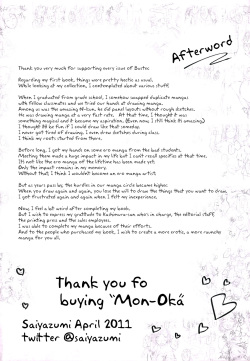 Afterword
Thank you very much for supporting every issue of Buster.
Regarding my first book, things were pretty hectic as usual.
While looking at my collection, I contemplated about various stuff.
When I graduated from grade school, I somehow swapped duplicate mangas
with fellow classmates and we tried our hands at drawing manga.
Among us was the amazing M-kun, he did panel layouts without rough sketches.
He was drawing manga at a very fast rate. At that time, I thought it was
something magical and it became my aspiration. (Even now I still think it's amazing)
I thought it'd be fun if I could draw like that someday.
I never got tired of drawing. I even drew sketches during class.
I think my roots started from there.
Before long, I got my hands on some ero mangas from the bad students.
Meeting them made a huge impact in my life but I can't recall specifics at that time.
It's not like the ero mangas of the lifetime has been made yet.
Only the impact remains in my memory.
Without that, I think I wouldn't become an ero manga artist.
But as years pass by, the hurdles in our manga circle became higher.
When you draw again and again, you lose the will to draw the things that you want to draw,
I got frustrated again and again when I felt my inexperience.
Now, I feel a bit weird after completing my book.
But I wish to express my gratitude to
who's in charge, the editorial staff
the printing press and the sales employees.
I was able to complete my manga because of their efforts.
And to the people who purchased my book, I wish to create a more erotic, a more raunchy
manga for you all.
Thank you fo
buying "Mon-Oká
Saiyazumi April 2011
twitter @saiyazumi